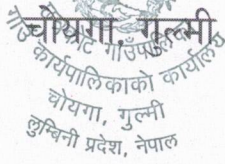 चोयगा, गुल्मी
गाउँपालिका
गाउँ कार्यपालिकाको कार्यालय
चोयगा, गुल्मी
लुम्बिनी प्रदेश, नेपाल